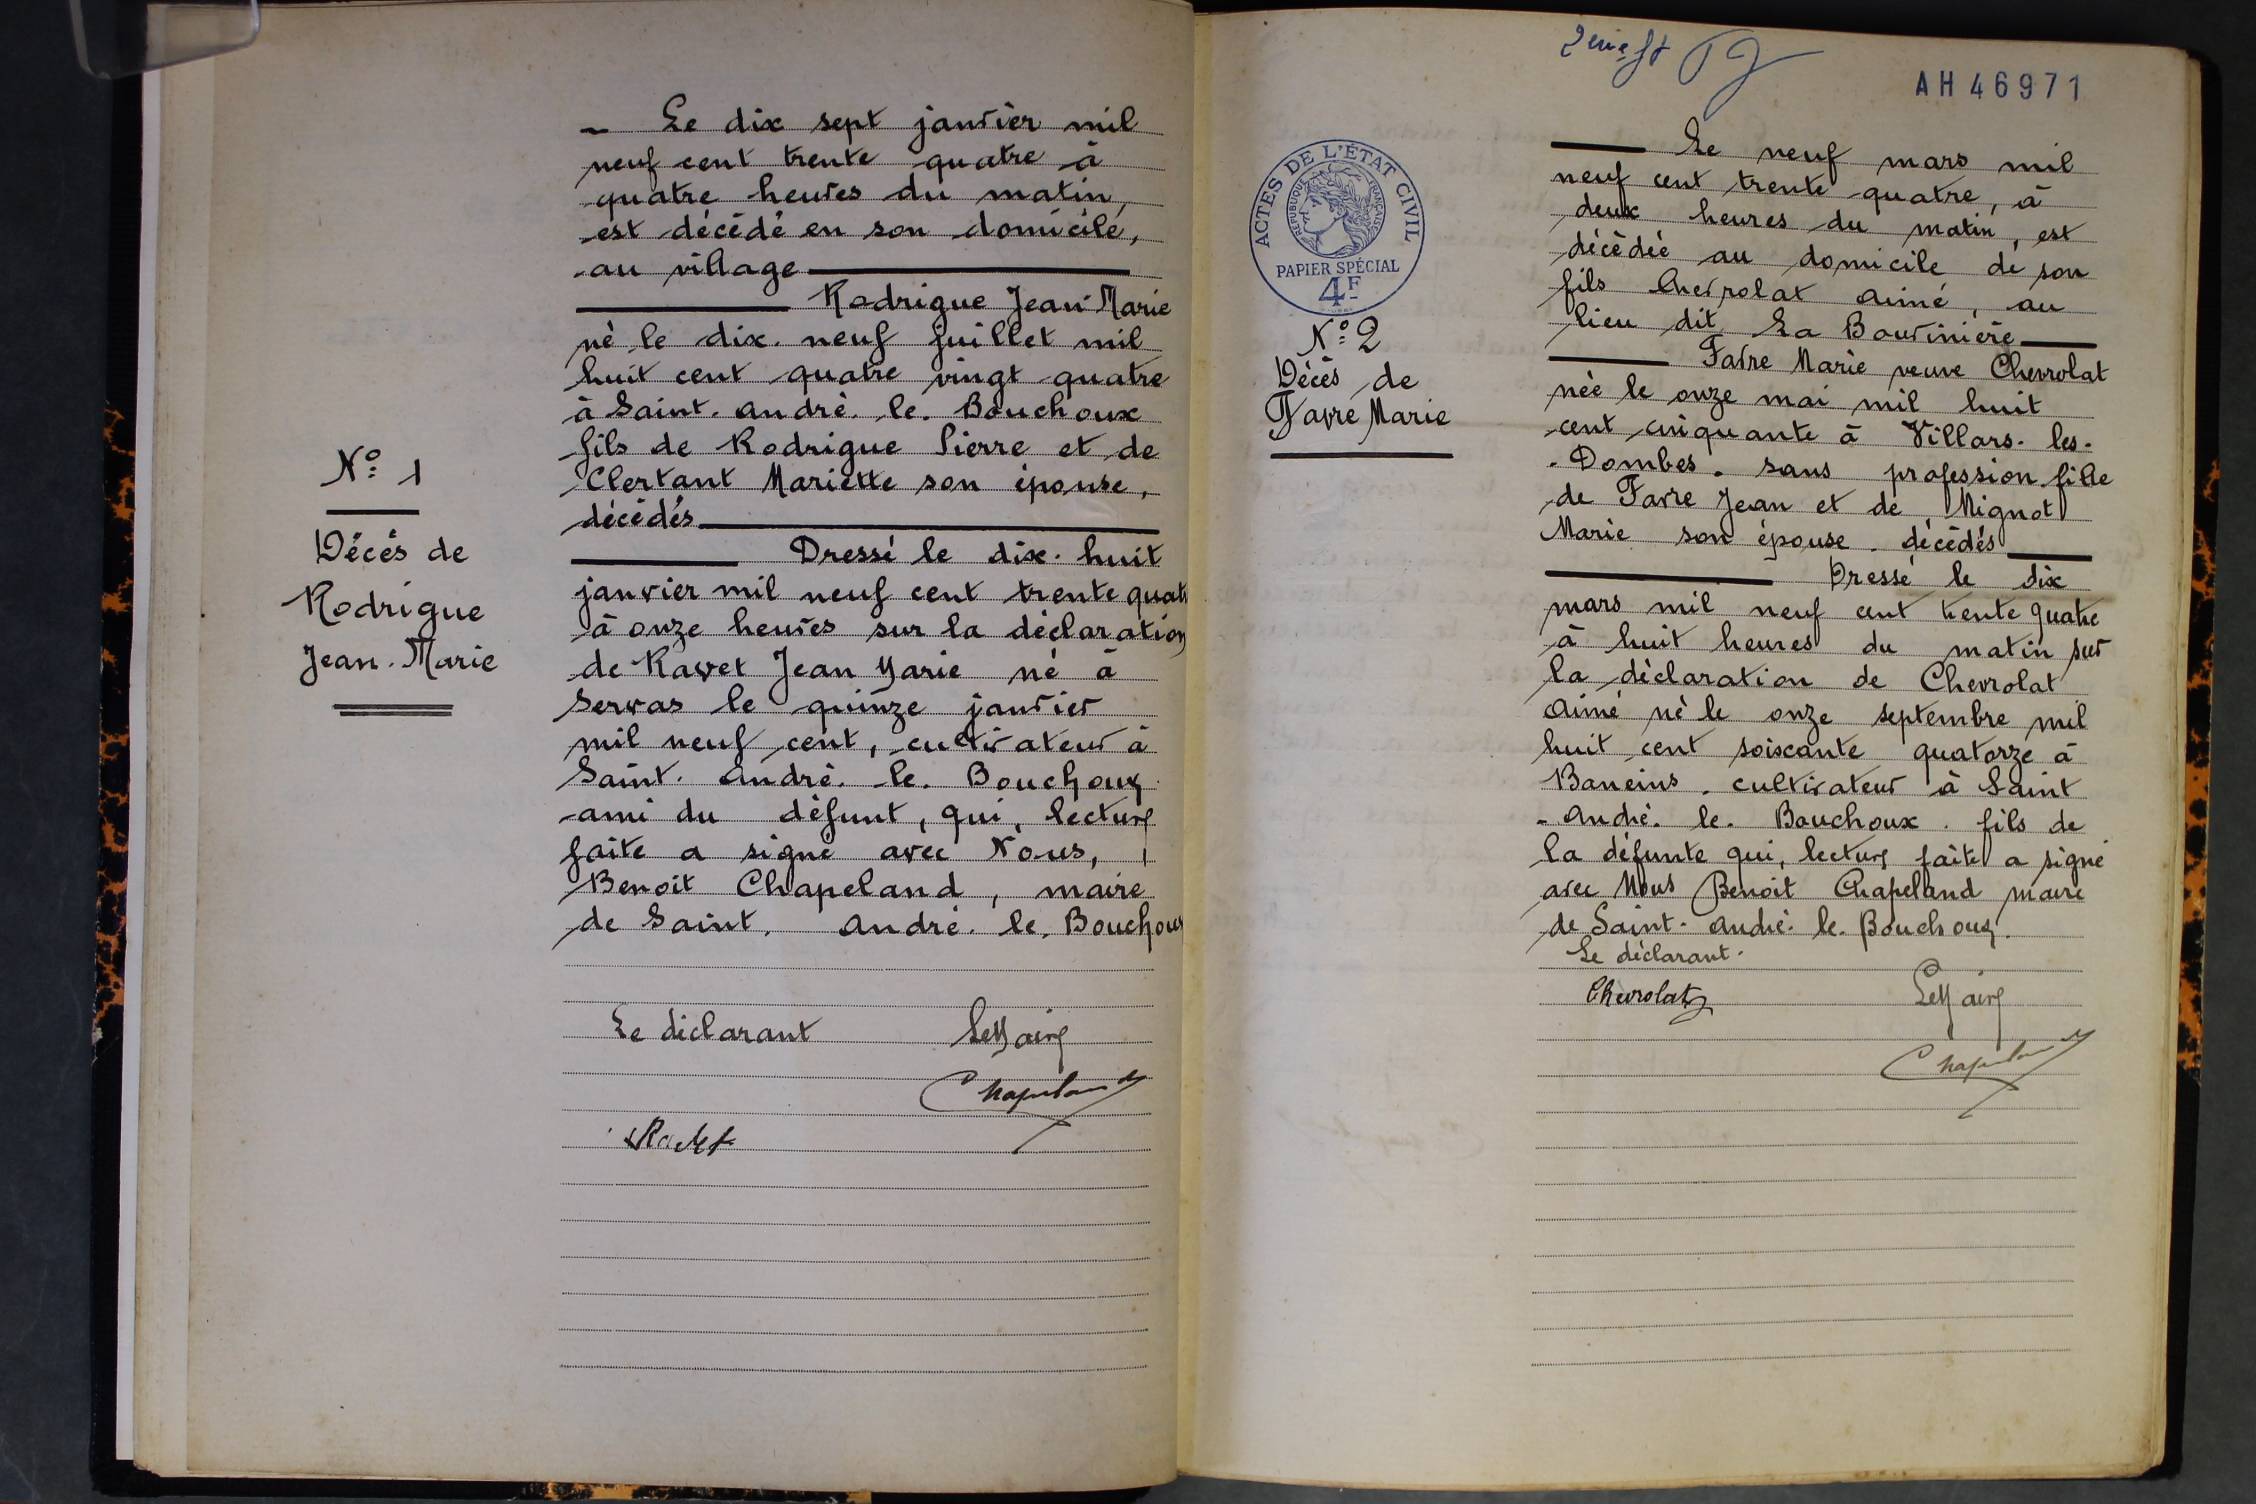 Le dix sept janvier mil
neuf cent trente quatre à
quatre heures du matin,
est décédé en son domicile,
au village
Rodrigue Jean-Marie
né le dix-neuf juillet mil
huit cent quatre vingt quatre
à Saint-André-le-Bouchoux
fils de Rodrigue Pierre et de
Clertant Mariette son épouse,
décédés
Dressé le dix-huit
janvier mil neuf cent trente quatr
à onze heures sur la déclaration
de Ravet Jean Marie né à
Servas le quinze janvier
mil neuf cent, cultivateur à
Saint-André-le-Bouchoux
ami du défunt, qui, lecture
faite a signé avec Nous,
Benoit Chapeland, maire
de Saint-André-le-Bouchoux
Le déclarant Le Maire
Chapeland
Ravet
N° 1
Décès de
Rodrigue
Jean-Marie
AH46971
ACTES DE L'ÉTAT CIVIL
RÉPUBLIQUE FRANÇAISE
PAPIER SPÉCIAL
4F
N° 2
Décès de
Favre Marie
Le neuf mars mil
neuf cent trente quatre, à
deux heures du matin, est
décédée au domicile de son
fils Chevrolat Aimé, au
lieu dit La Bouvinière
Favre Marie veuve Chevrolat
née le onze mai mil huit
cent cinquante à Villars-les-
-Dombes. sans profession fille
de Favre Jean et de Mignot
Marie son épouse. décédés
Dressé le dix
mars mil neuf cent trente quatre
à huit heures du matin sur
la déclaration de Chevrolat
Aimé né le onze septembre mil
huit cent soixante quatorze à
Baneins. cultivateur à Saint
-André-le-Bouchoux. fils de
la défunte qui, lecture faite a signé
avec Nous Benoit Chapeland maire
de Saint-André-le-Bouchoux.
Le déclarant.
Chevrolat Le Maire
Chapeland